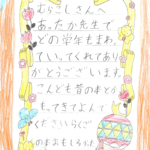 むらこしさんへ
あったか先生で
どの学年もまわっ
ていってくれてあり
がとうございます。
こんども昔の本とか
もってきてよんで
くださいらくご
の本おもしろかた